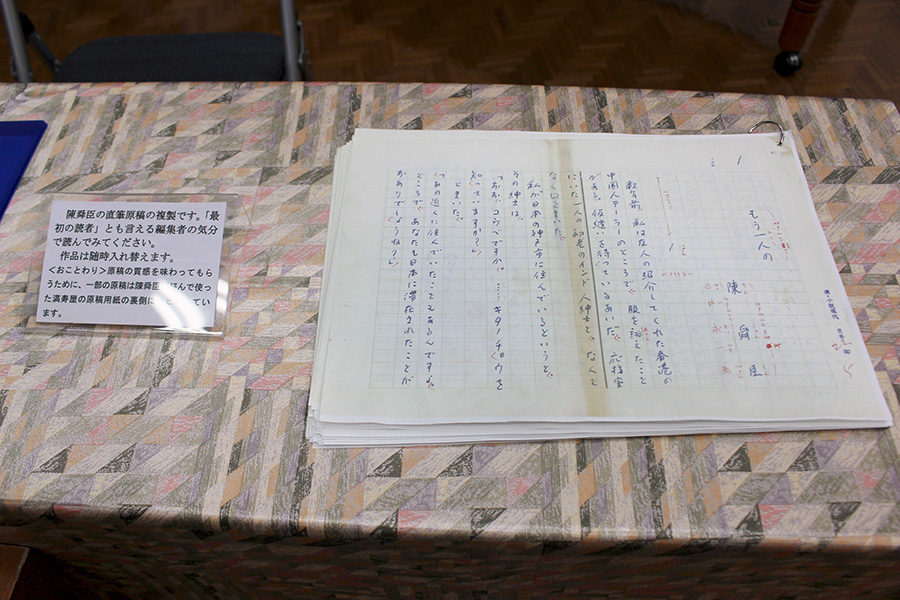 陳舜臣の直筆原稿の複製です。「最
初の読者」とも言える編集者の気分
で読んでみてください。
作品は随時入れ替えます。
<おことわり>原稿の質感を味わってもら
うために、一部の原稿は陳舜臣 好んで使っ
た満寿屋の原稿用紙の裏側に してい
ます。
1
もう一人の
陳 舜臣
数年前、私は友人の紹介してくれた香港の
中国人テーラーのところで、服を誂えたこと
がある。仮縫いを待っているあいだ、応接室
にいた一人の初老のインド人紳士と、なんと
なく
私が日本の神戸市に住んでいるというと、
その紳士は、
「おお、コウベですか。……キタノチョウを
知っていますか?」
ときいた。
「あの近くに住んでいたこともあるんですよ。
ところで、あなたも日本に滞在されたことが
かありでしょうね?」